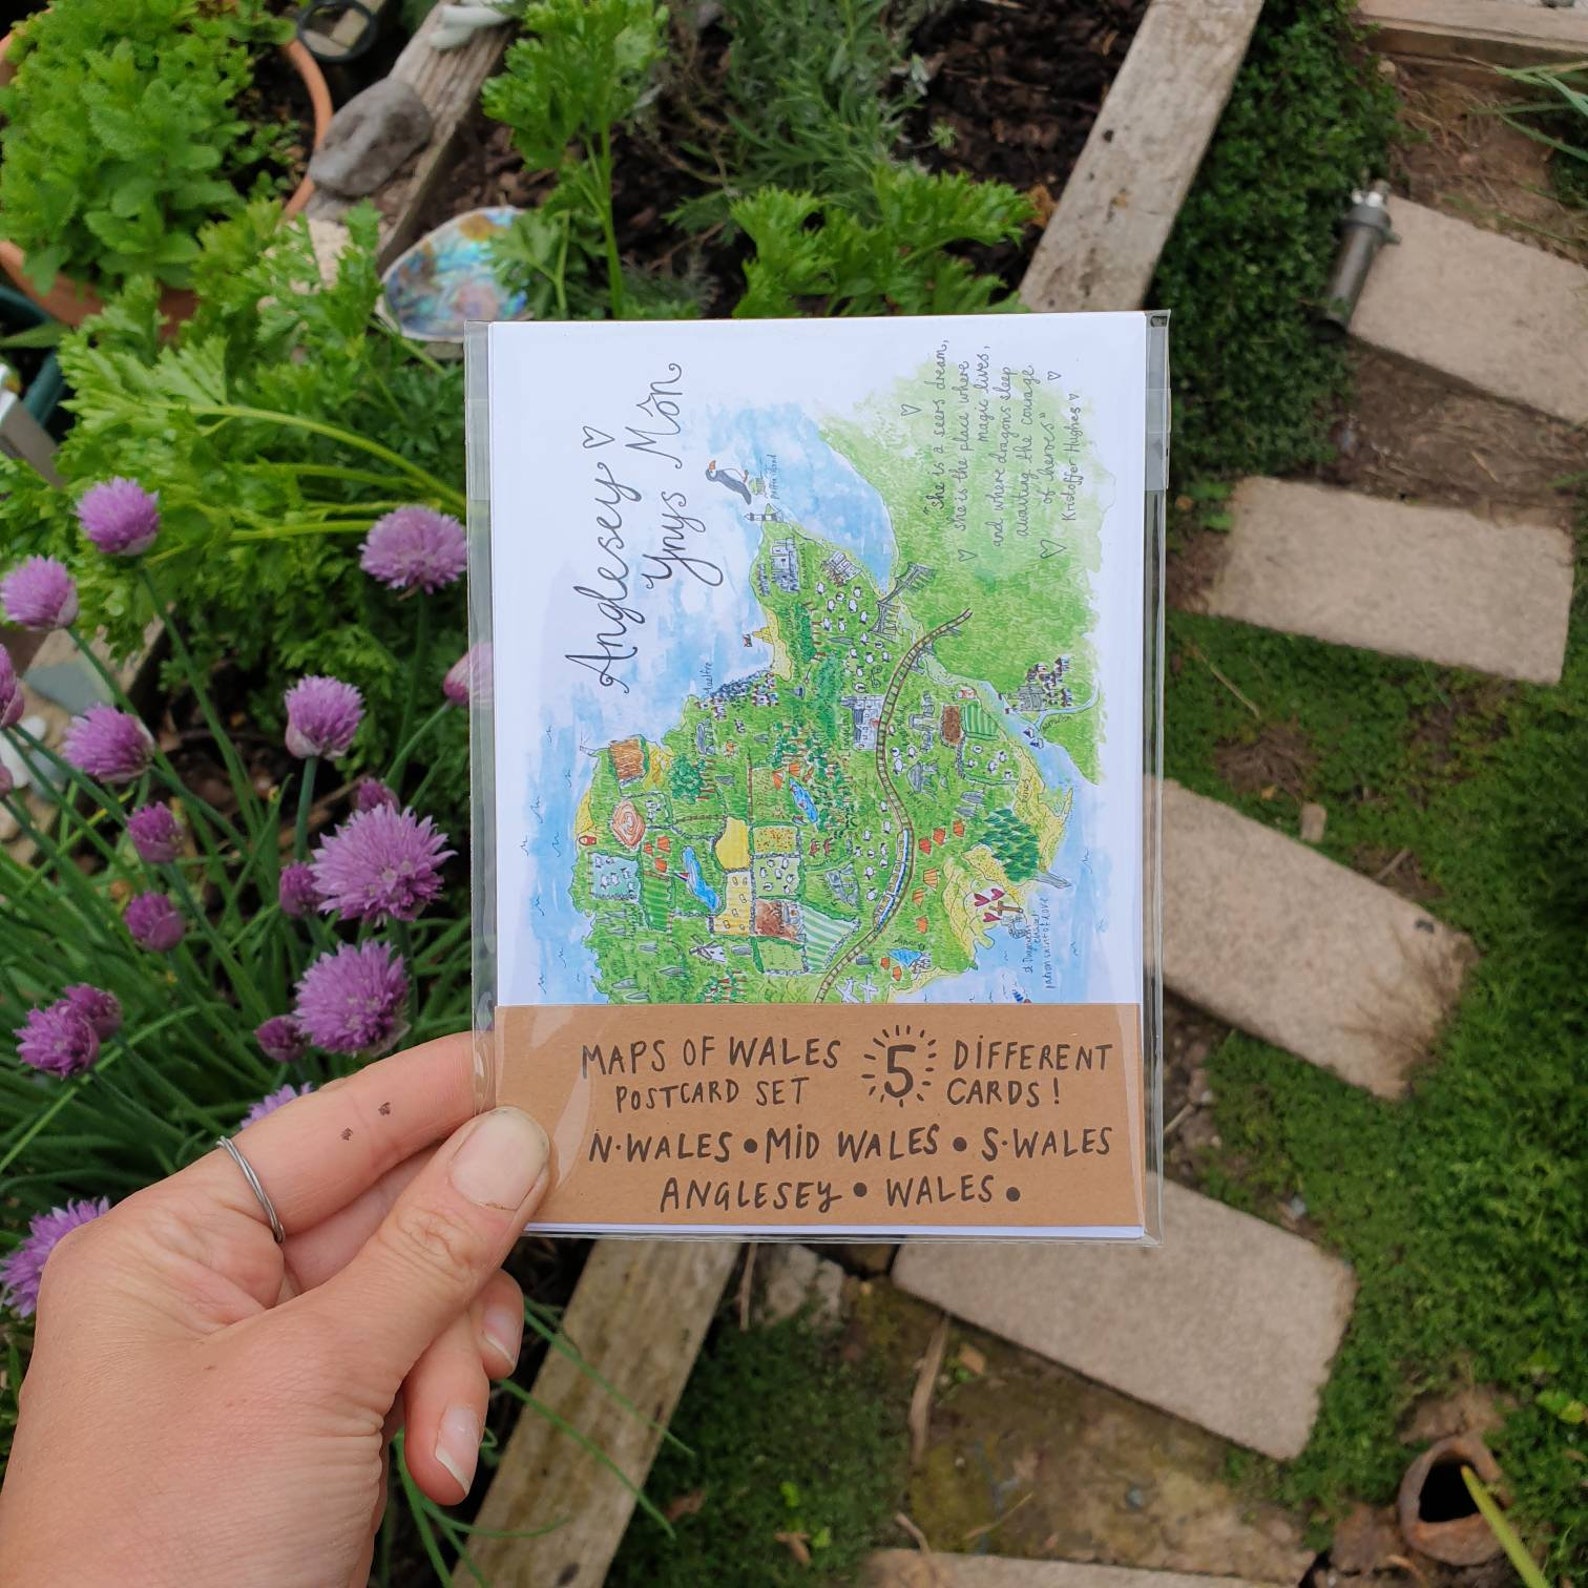 Anglesey
Ynys Môn
"She is a seers dream,
she is the place where
magic lives,
and where dragons sleep
awaiting the courage
of heroes"
Kristoffer Hughes
Moelfre
St Dwynwen
patron saint of love
MAPS OF WALES
POSTCARD SET
5
DIFFERENT
CARDS!
N·WALES • MID WALES • S·WALES
ANGLESEY • WALES •